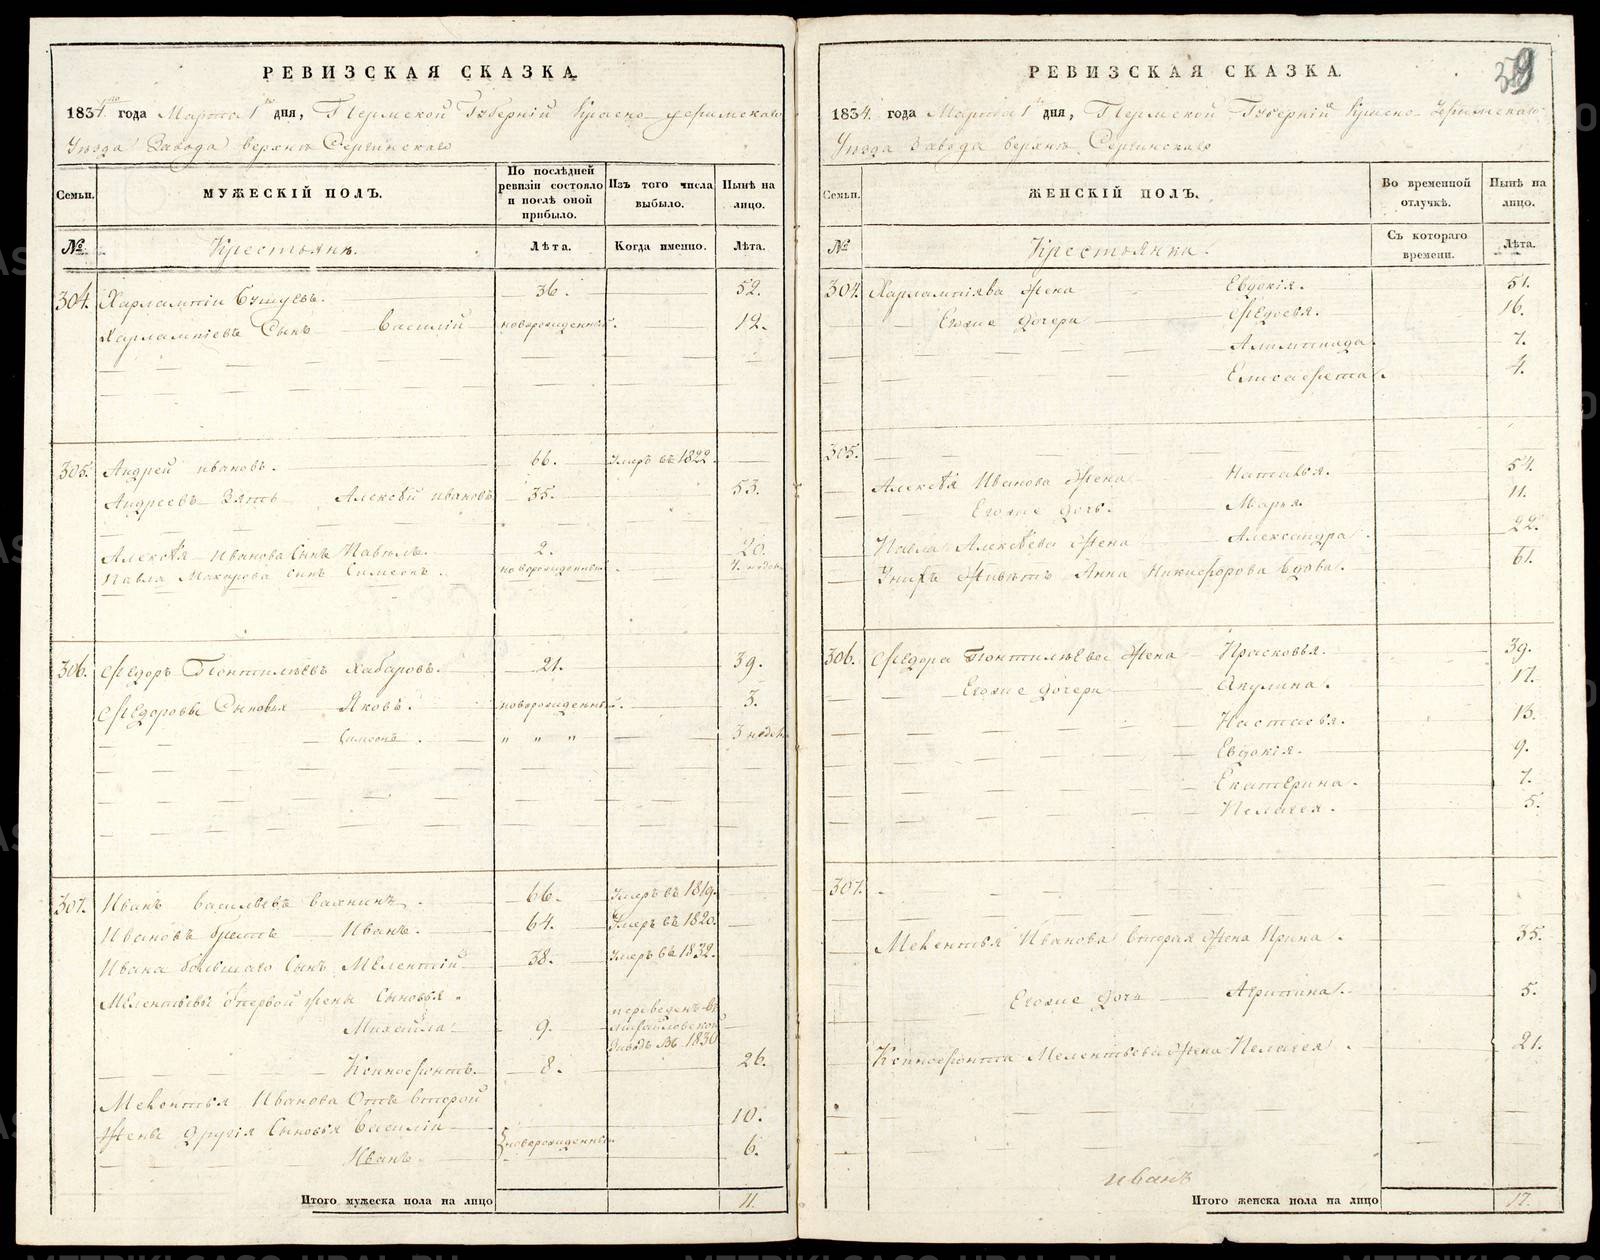 РЕВИЗСКАЯ СКАЗКА.
1834 года Марта 1 дня, Пермской Губерніи Красно-уфимскаго
Уѣзда Завода верхне Сергинскаго
Семьи.
МУЖЕСКІЙ ПОЛЪ.
По послѣдней ревизіи состояло и послѣ оной прибыло.
Изъ того числа выбыло.
Нынѣ на лицо.
№
Крестьянъ.
Лѣта.
Когда именно.
Лѣта.
304. Харлампій 36. 52.
Харлампіевъ Сынъ Василій новорожденный. 12.
305. Андрей ивановъ. 66. Умеръ въ 1822.
Андреевъ Зять Алексѣй ивановъ 35. 53.
Алексѣя Иванова Сынъ Павелъ. 2. 20.
Павла Сынъ Симеонъ. новорожденный.
306. Федоръ Хабаровъ. 21. 39.
Федоровы Сыновья Яковъ. новорожденный. 3.
Симеонъ. " " " 3 недѣл.
307. Иванъ Васильевъ 66. Умеръ въ 1819.
Ивановъ братъ Иванъ. 64. Умеръ въ 1820.
Ивана большаго Сынъ Мелентій 38. Умеръ въ 1832.
Мелентьевы Первой жены Сыновья.
Михайла. 9. переведенъ въ
Михайловской
Заводъ въ 1830
Ксенофонтъ. 8. 26.
Мелентья Иванова Отъ второй
Жены другія Сыновья Василій 10.
Иванъ. новорожденны 6.
Итого мужеска пола на лицо 11.
РЕВИЗСКАЯ СКАЗКА.
39
1834. года Марта 1 дня, Пермской Губерніи Красно-Уфимскаго
Уѣзда Завода верхне Сергинскаго
Семьи.
ЖЕНСКІЙ ПОЛЪ.
Во временной отлучкѣ.
Нынѣ на лицо.
№
Крестьянки.
Съ котораго времени.
Лѣта.
304. Харлампіева Жена Евдокія. 51.
Ево же дочери Федосья. 16.
Алимпіада. 7.
Елисафета. 4.
305.
Алексѣя Иванова Жена Наталья. 54.
Ево же дочь. Марья. 11.
Павла Алексѣева Жена Александра. 22.
У нихъ Живетъ Анна Никифорова Вдова. 61.
306. Федора Жена Прасковья. 39.
Ево же дочери Акулина. 17.
Настасья. 13.
Евдокія. 9.
Екатерина. 7.
Пелагея. 5.
307.
Мелентья Иванова вторая Жена Ирина. 35.
Ево же дочь Агрипина. 5.
Ксенофонта Мелентьева Жена Пелагея. 21.
иванъ
Итого женска пола на лицо 17.